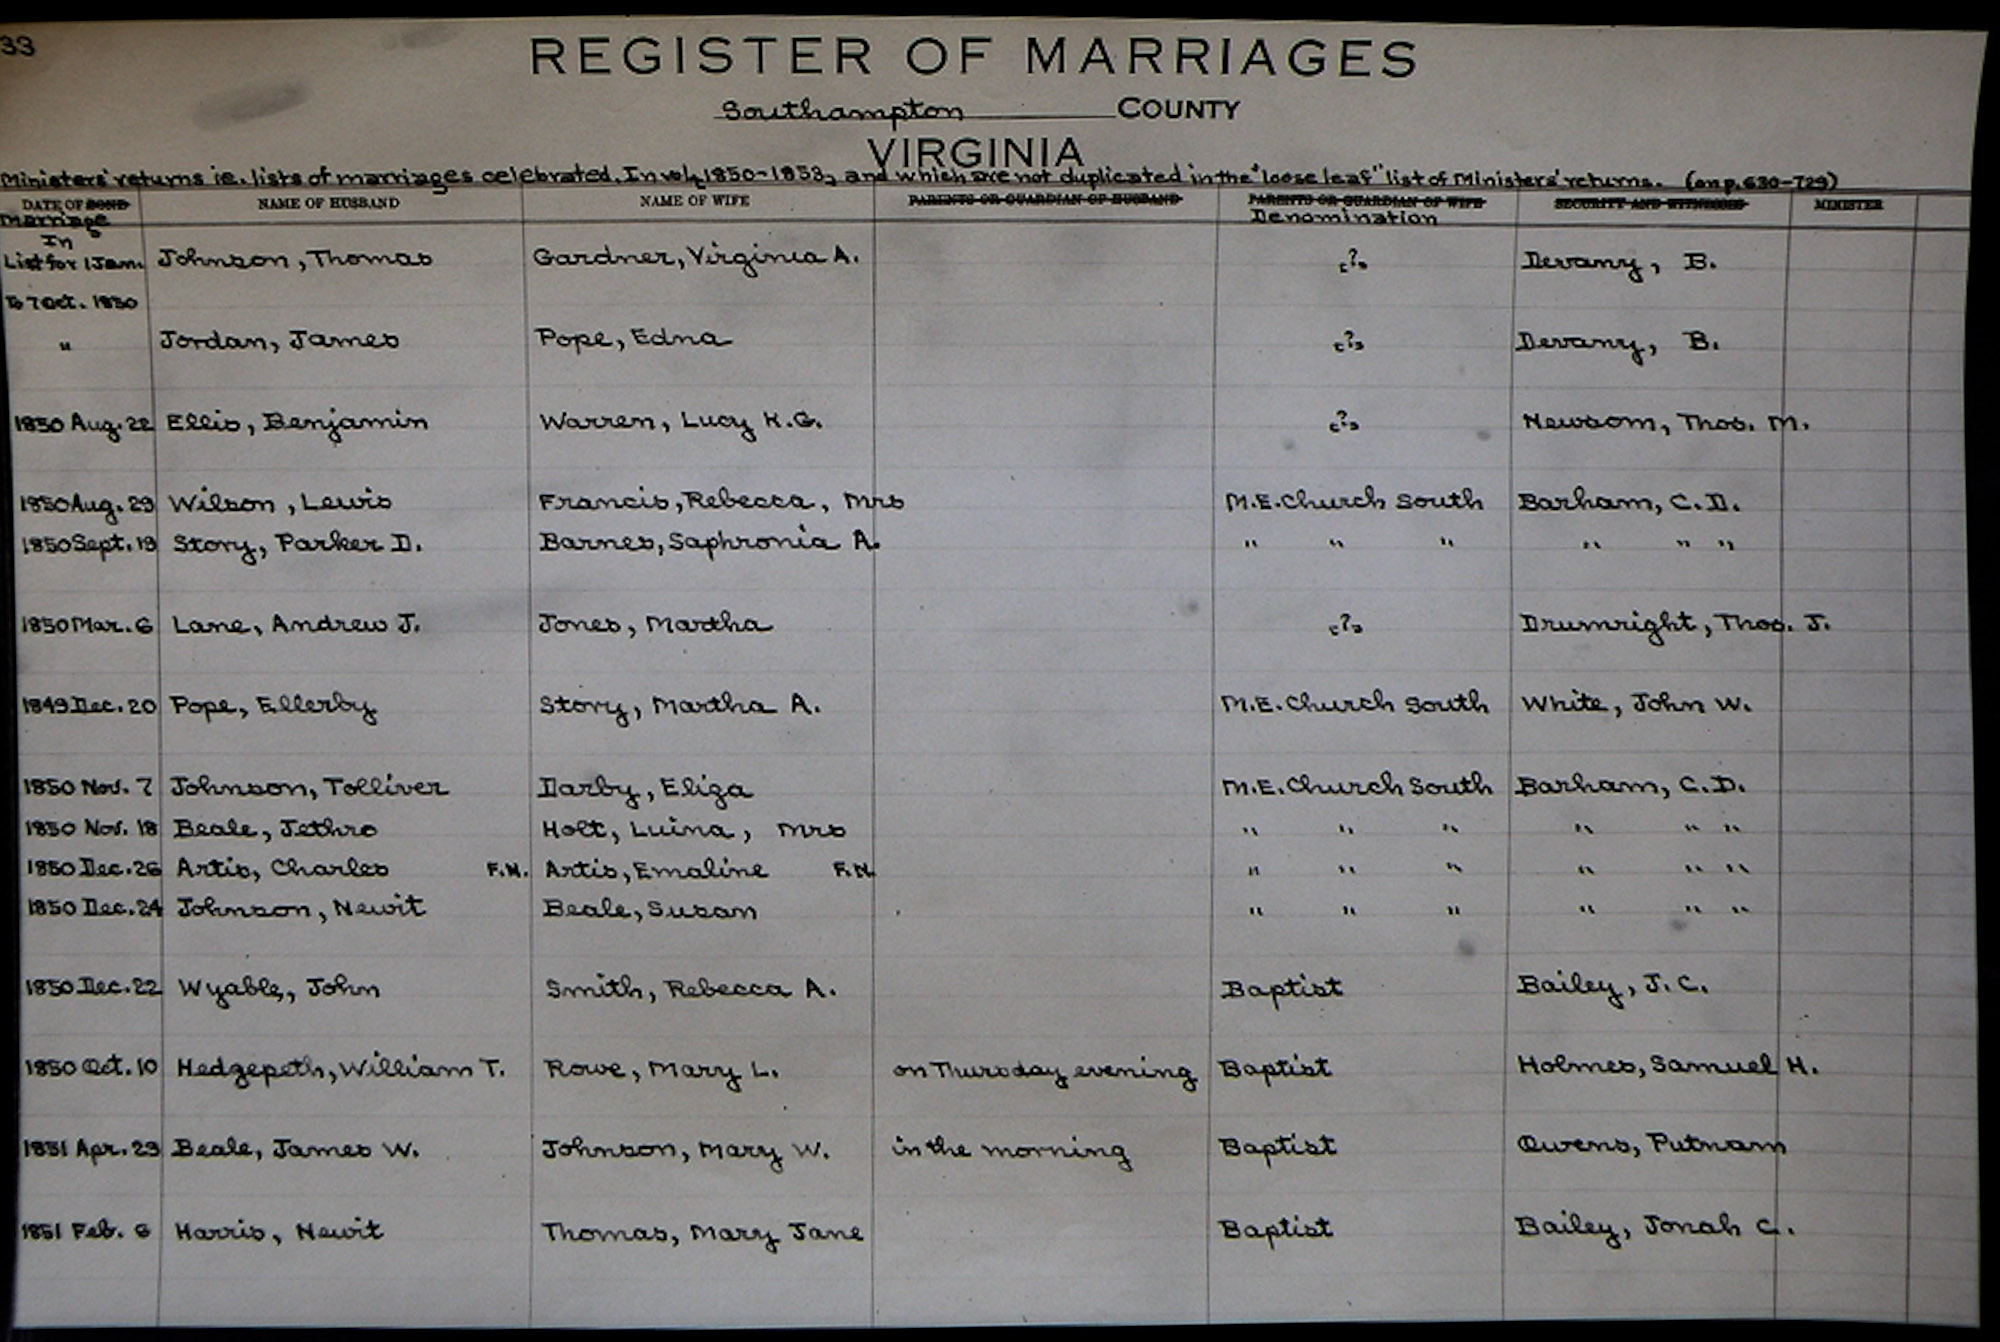 33
REGISTER OF MARRIAGES
Southampton COUNTY
VIRGINIA
Ministers' returns ie. lists of marriages celebrated. In vol. 1850-1853, and which are not duplicated in the "loose leaf" list of Ministers' returns. (on p. 630-729)
DATE OF BOND NAME OF HUSBAND NAME OF WIFE PARENTS OR GUARDIAN OF HUSBAND PARENTS OR GUARDIAN OF WIFE SECURITY AND WITNESSES MINISTER
Marriage Denomination
In
List for 1 Jan. Johnson, Thomas Gardner, Virginia A. c?s Devany, B.
to 7 Oct. 1850
" Jordan, James Pope, Edna c?s Devany, B.
1850 Aug. 22 Ellis, Benjamin Warren, Lucy H.G. c?s Newsom, Thos. M.
1850 Aug. 29 Wilson, Lewis Francis, Rebecca, Mrs M.E. Church South Barham, C.D.
1850 Sept. 19 Story, Parker D. Barnes, Saphronia A. " " " " " "
1850 Mar. 6 Lane, Andrew J. Jones, Martha c?s Drumright, Thos. J.
1849 Dec. 20 Pope, Ellerby Story, Martha A. M.E. Church South White, John W.
1850 Nov. 7 Johnson, Tolliver Darby, Eliza M.E. Church South Barham, C.D.
1850 Nov. 18 Beale, Jethro Holt, Luina, Mrs " " " " " "
1850 Dec. 26 Artis, Charles F.N. Artis, Emaline F.N. " " " " " "
1850 Dec. 24 Johnson, Newit Beale, Susan " " " " " "
1850 Dec. 22 Wyable, John Smith, Rebecca A. Baptist Bailey, J.C.
1850 Oct. 10 Hedgepeth, William T. Rowe, Mary L. on Thursday evening Baptist Holmes, Samuel H.
1851 Apr. 23 Beale, James W. Johnson, Mary W. in the morning Baptist Owens, Putnam
1851 Feb. 6 Harris, Newit Thomas, Mary Jane Baptist Bailey, Jonah C.